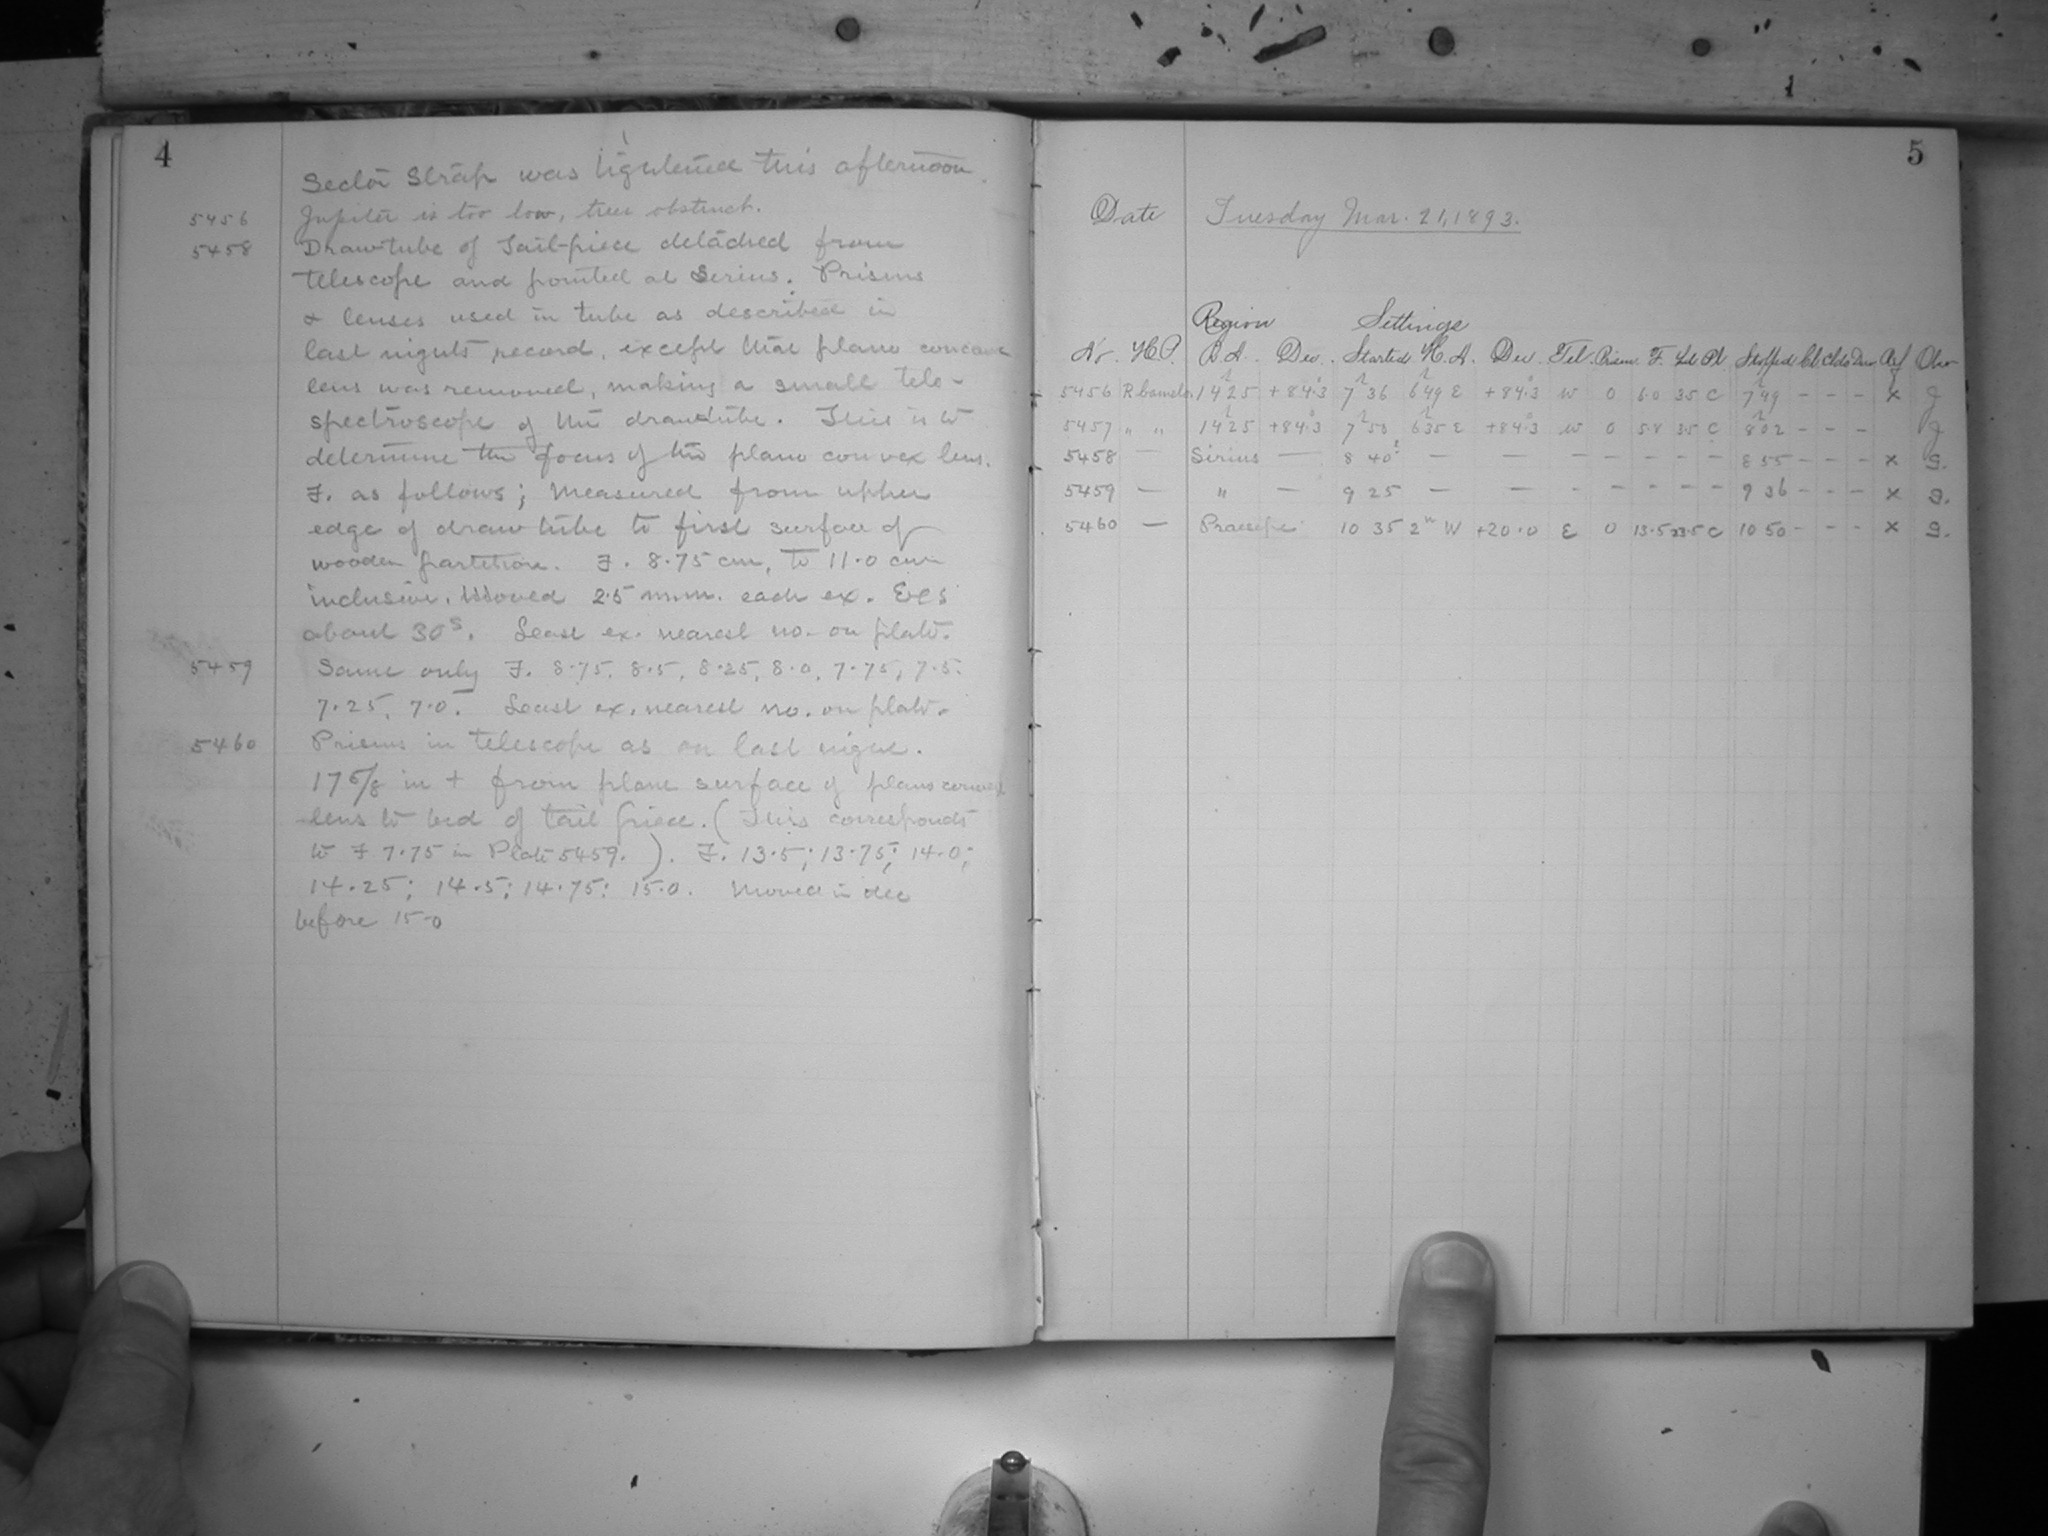 4
Sector Strap was tightened this afternoon.
5456 Jupiter is too low, trees obstruct.
5458 Draw-tube of Tail-piece detached from
telescope and pointed at Sirius. Prisms
& lenses used in tube as described in
last nights record, except that plano concave
lens was removed, making a small tele-
spectroscope of the draw tube. This is to
determine the focus of the plano convex lens.
F. as follows; Measured from upper
edge of draw tube to first surface of
wooden partition. F. 8.75 cm, to 11.0 cm
inclusive. Moved 2.5 m.m. each ex. Exs
about 30s. Least ex. nearest no. on plate.
5459 Same only F. 8.75, 8.5, 8.25, 8.0, 7.75, 7.5.
7.25, 7.0. Least ex. nearest no. on plate.
5460 Prisms in telescope as on last night.
17 5/8 in + from plane surface of plano convex
lens to bed of tail piece. (This corresponds
to F 7.75 in Plate 5459.). F. 13.5; 13.75; 14.0;
14.25; 14.5; 14.75; 15.0. Moved in dec
before 15.0
5
Date Tuesday Mar. 21, 1893.
Region Settings
No. H.P. R.A. Dec. Started H.A. Dec. Tel. Prism. F. Pl. Stopped Cl. Clds Obs
5456 R Camelo. 14h 25 +84°.3 7h 36 6h 49 E +84°.3 W 0 6.0 35 C 7h 49 - - - x J
5457 " " 14h 25 +84°.3 7h 50 6h 35 E +84°.3 W 0 5.8 35 C 8h 02 - - - J
5458 — Sirius — 8 40 — — — - - - - 8 55 - - - x G.
5459 — " — 9 25 — — - - - - - 9 36 - - - x G.
5460 — Praesepe 10 35 2m W +20.0 E 0 13.5 33.5 C 10 50 - - - x G.